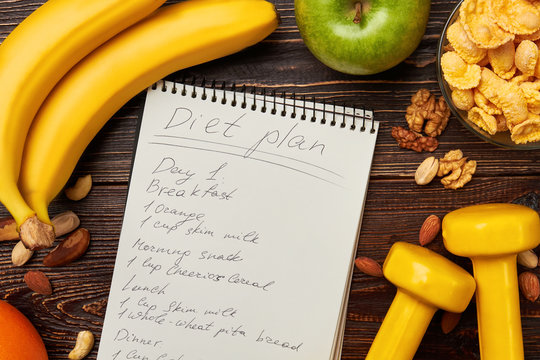 Diet plan
Day 1.
Breakfast
1 Orange
1 cup skim milk
Morning snack
1 cup Cheerios cereal
Lunch
1 cup skim milk
1 whole-wheat pita bread
Dinner:
1 cup